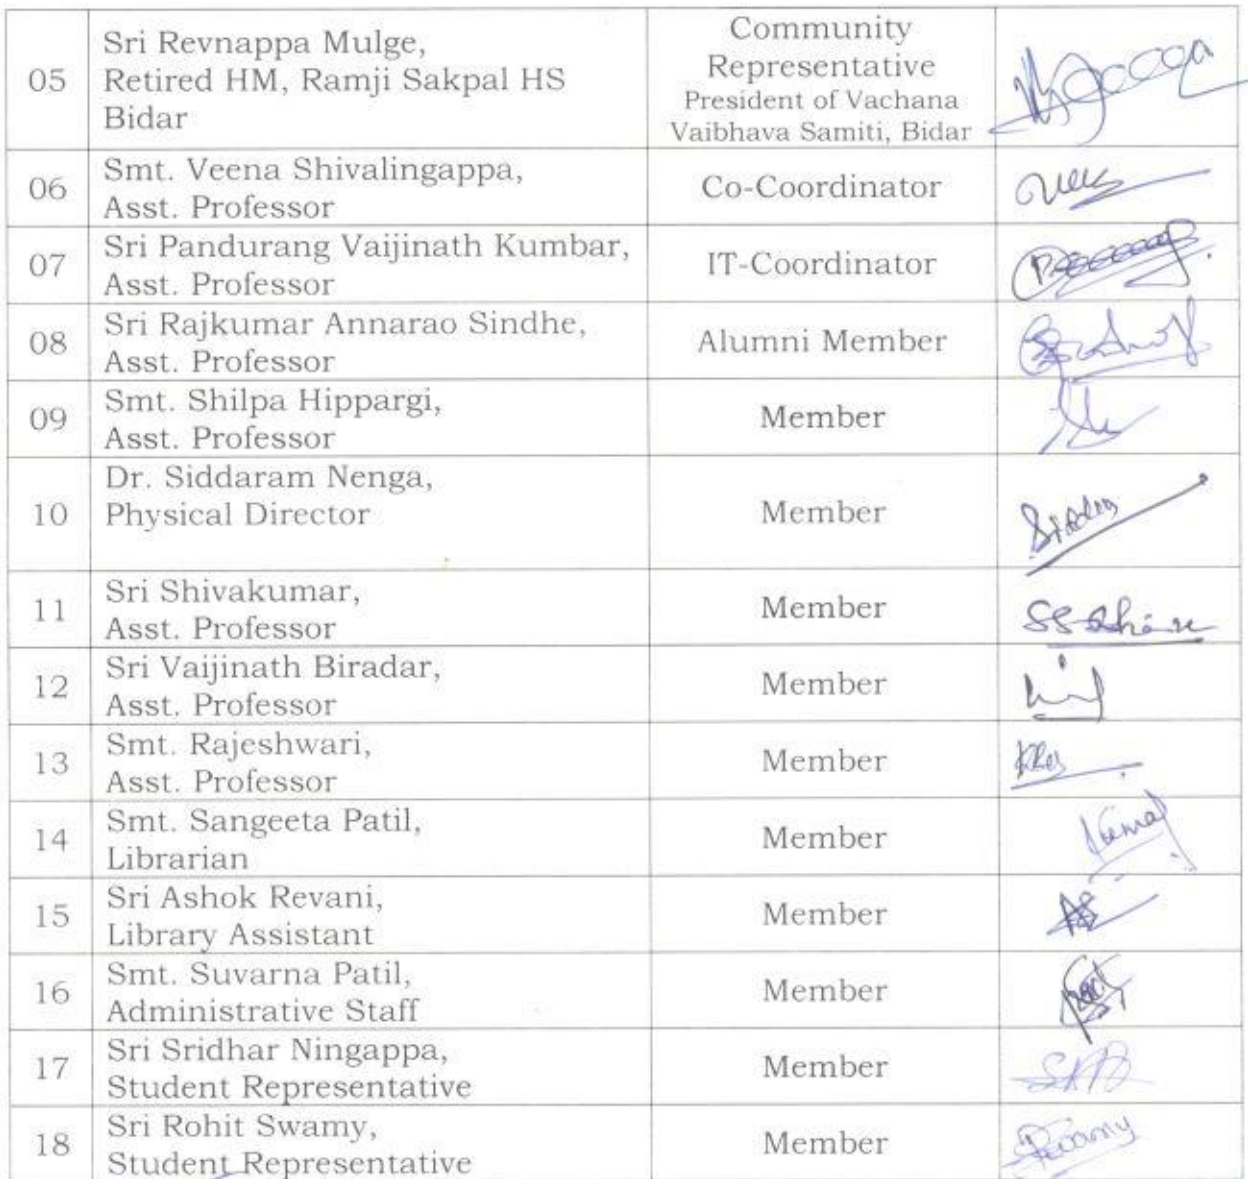 05
Sri Revnappa Mulge,
Retired HM, Ramji Sakpal HS
Bidar
Community
Representative
President of Vachana
Vaibhava Samiti, Bidar
06
Smt. Veena Shivalingappa,
Asst. Professor
Co-Coordinator
07
Sri Pandurang Vaijinath Kumbar,
Asst. Professor
IT-Coordinator
08
Sri Rajkumar Annarao Sindhe,
Asst. Professor
Alumni Member
09
Smt. Shilpa Hippargi,
Asst. Professor
Member
10
Dr. Siddaram Nenga,
Physical Director
Member
11
Sri Shivakumar,
Asst. Professor
Member
12
Sri Vaijinath Biradar,
Asst. Professor
Member
13
Smt. Rajeshwari,
Asst. Professor
Member
14
Smt. Sangeeta Patil,
Librarian
Member
15
Sri Ashok Revani,
Library Assistant
Member
16
Smt. Suvarna Patil,
Administrative Staff
Member
17
Sri Sridhar Ningappa,
Student Representative
Member
18
Sri Rohit Swamy,
Student Representative
Member